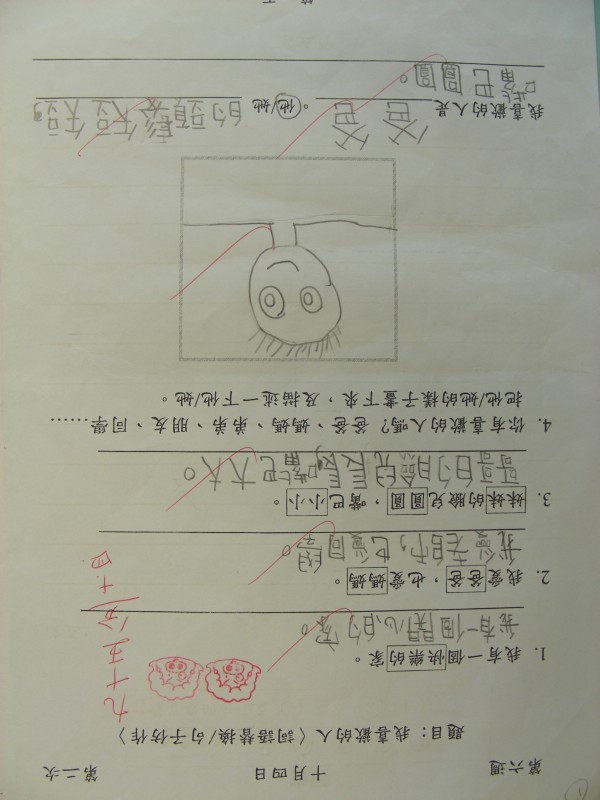 第六週 十月四日 第二次
題目：我喜歡的人〈詞語替換/句子仿作〉
九十五分
十.四.
1. 我有一個快樂的家。
我有一個開心的家。
2. 我愛爸爸，也愛媽媽。
我愛老師，也愛同學。
3. 妹妹的臉兒圓圓，嘴巴小小。
哥哥的臉兒長長，嘴巴大大。
4. 你有喜歡的人嗎? 爸爸、媽媽、弟弟、朋友、同學……
把他/她的樣子畫下來，及描述一下他/她。
我喜歡的人是爸爸。他/她的頭髮短短的，
嘴巴圓圓。